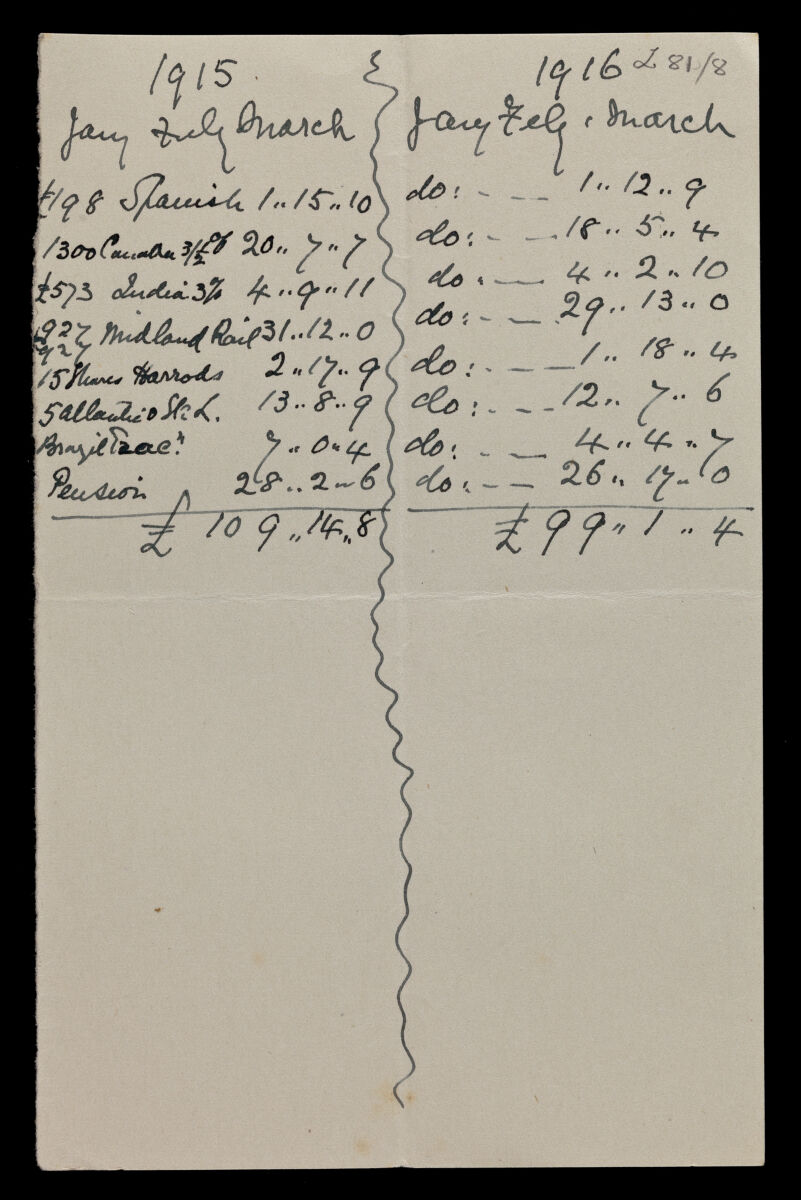 1915
Jany Feby March
£198 Spanish 1 .. 15 .. 10
1300 Canada 3½% 20 .. 7 .. 7
£573 India 3% 4 .. 9 .. 11
927 Midland Rail 31 .. 12 .. 0
927
15 Shares Harrods 2 .. 17 .. 9
5 Atlantic St. L. 13 .. 8 .. 9
Brazil Trac.n 7 .. 0 .. 4
Pension 28 .. 2 .. 6
£ 109 .. 14 .. 8
1916 £81/8
Jany Feby . March
do: - - - 1 .. 12 .. 9
do: - - - 18 .. 5 .. 4
do . - - 4 .. 2 .. 10
do: - - . 29 .. 13 .. 0
do: - - - 1 .. 18 .. 4
do: - - - 12 .. 7 .. 6
do: - - 4 .. 4 .. 7
do: - - 26 .. 17 .. 0
£ 99 .. 1 .. 4